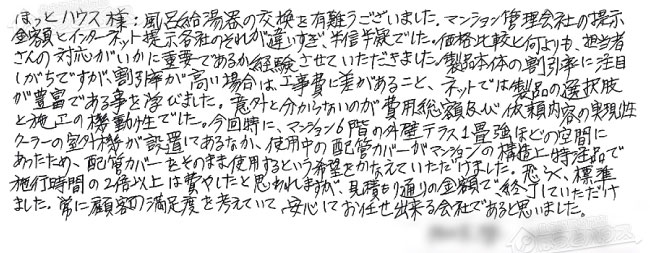 ほっとハウス様：風呂給湯器の交換を有難うございました。マンション管理会社の提示
金額とインターネット提示各社のそれが違いすぎ、半信半疑でした。価格比較と何よりも、担当者
さんの対応がいかに重要であるか経験させていただきました。製品本体の割引率に注目
しがちですが、割引率が高い場合は工事費に差があること、ネットでは製品の選択肢
が豊富である事を学びました。意外と分からないのが費用総額及び依頼内容の実現性
と施工の機動性でした。今回特に、マンション6階の外壁テラス1畳強ほどの空間に
クーラーの室外機が設置にあるなか、使用中の配管カバーがマンションの構造上特注品で
あったため、配管カバーをそのまま使用するという希望をかなえていただけました。恐らく、標準
施行時間の2倍以上は費やしたと思われますが、見積もり通りの金額で終了していただけ
ました。常に顧客の満足度を考えていて、安心してお任せ出来る会社であると思いました。